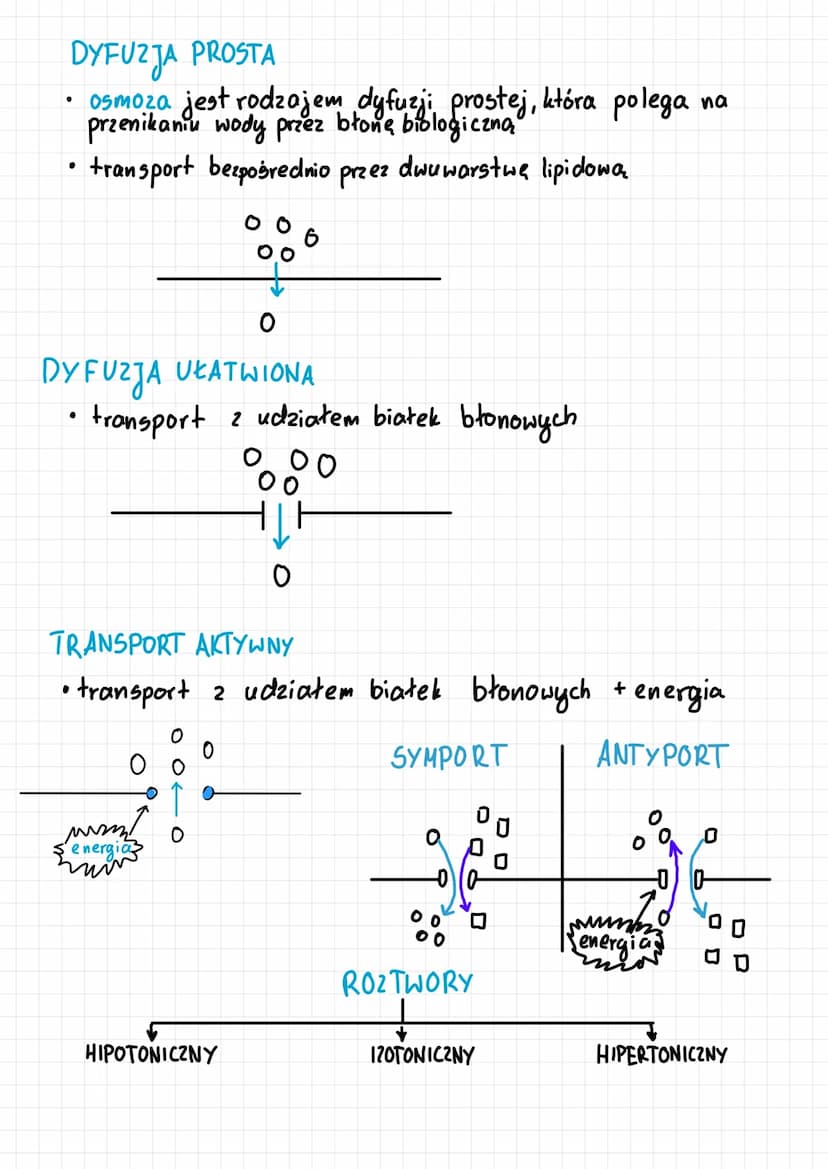 DYFUZJA PROSTA
• osmoza jest rodzajem dyfuzji prostej, która polega na
przenikaniu wody przez błonę biologiczną
• transport bezpośrednio przez dwuwarstwę lipidową
DYFUZJA UŁATWIONA
• transport z udziałem białek błonowych
TRANSPORT AKTYWNY
• transport z udziałem białek błonowych + energia
SYMPORT
ANTYPORT
energia
energia
ROZTWORY
HIPOTONICZNY
IZOTONICZNY
HIPERTONICZNY